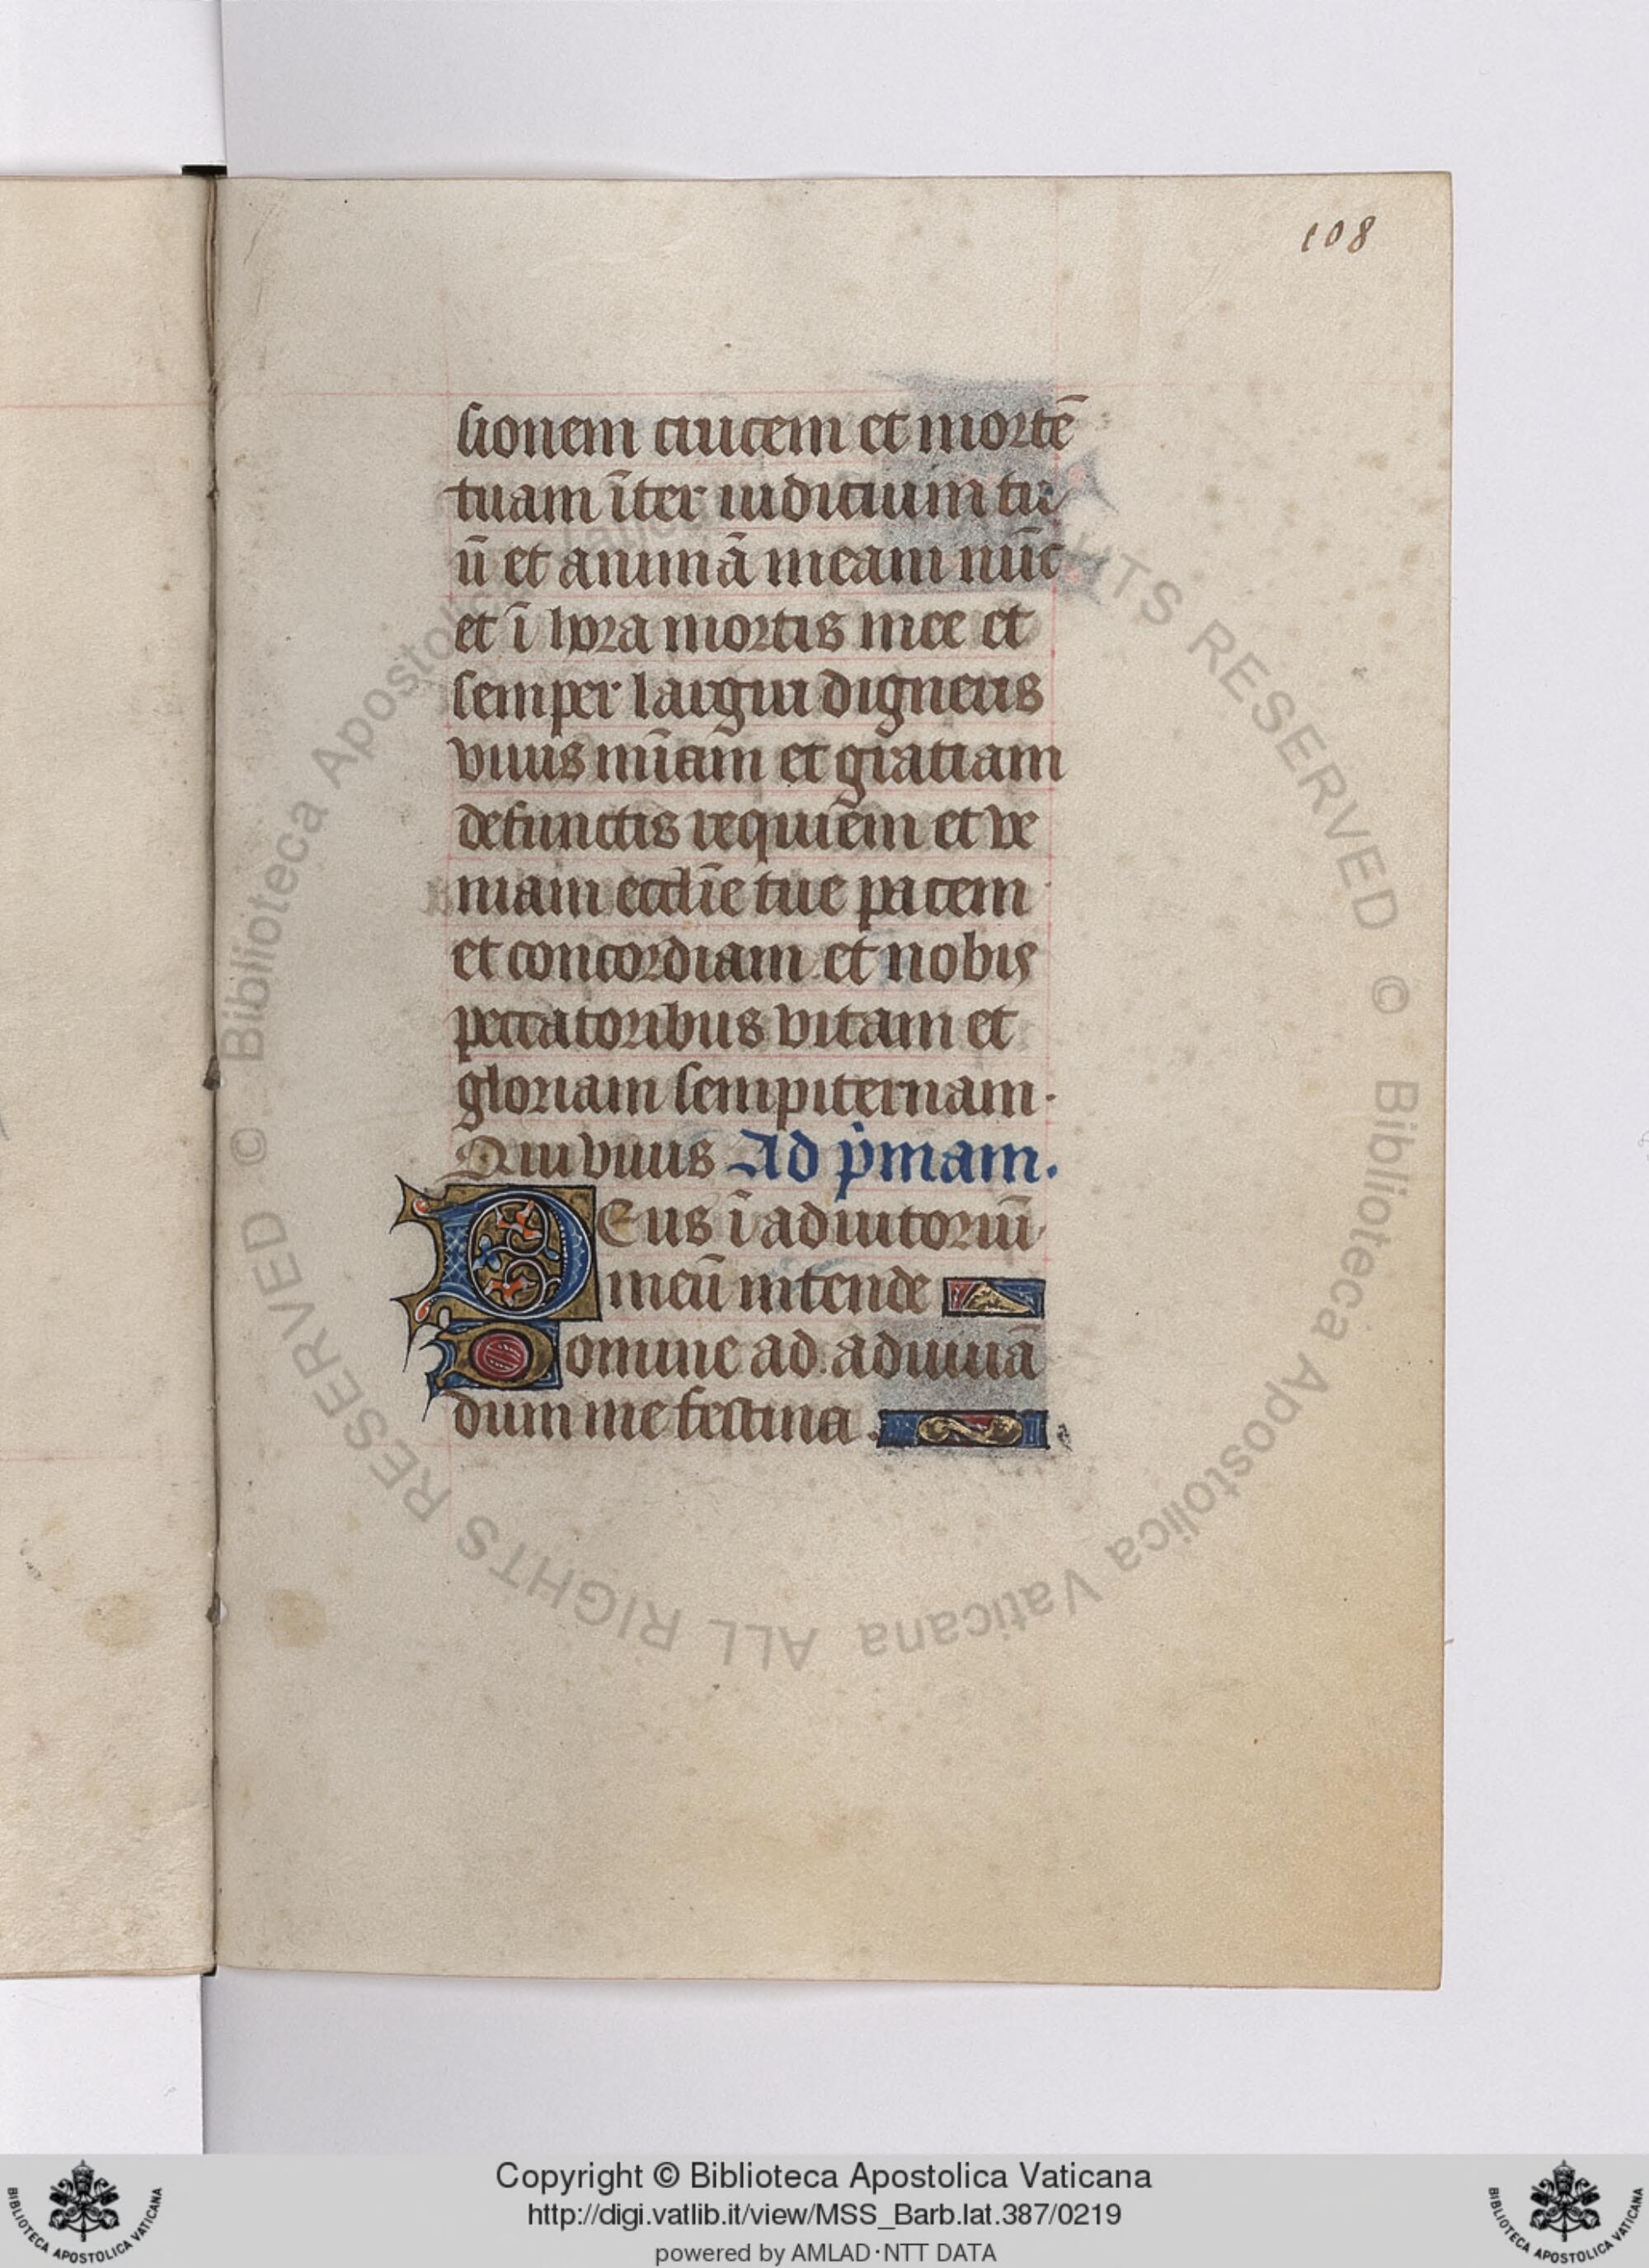 108
sionem crucem et mortē
tuam īter iudicium tu
ū et animā meam nūc
et ī hora mortis mee et
semper largiri digneris
viuis mīam et gratiam
defunctis requiem et ve
niam ecclīe tue pacem
et concordiam et nobis
peccatoribus vitam et
gloriam sempiternam.
Qui viuis Ad pͥmam.
Deus ī adiutoriū
meū intende
Domine ad adiuuā
dum me festina.
© Biblioteca Apostolica Vaticana ALL RIGHTS RESERVED © Biblioteca Apostolica Vaticana ALL RIGHTS RESERVED
Copyright © Biblioteca Apostolica Vaticana
http://digi.vatlib.it/view/MSS_Barb.lat.387/0219
powered by AMLAD·NTT DATA
BIBLIOTECA APOSTOLICA VATICANA
BIBLIOTECA APOSTOLICA VATICANA